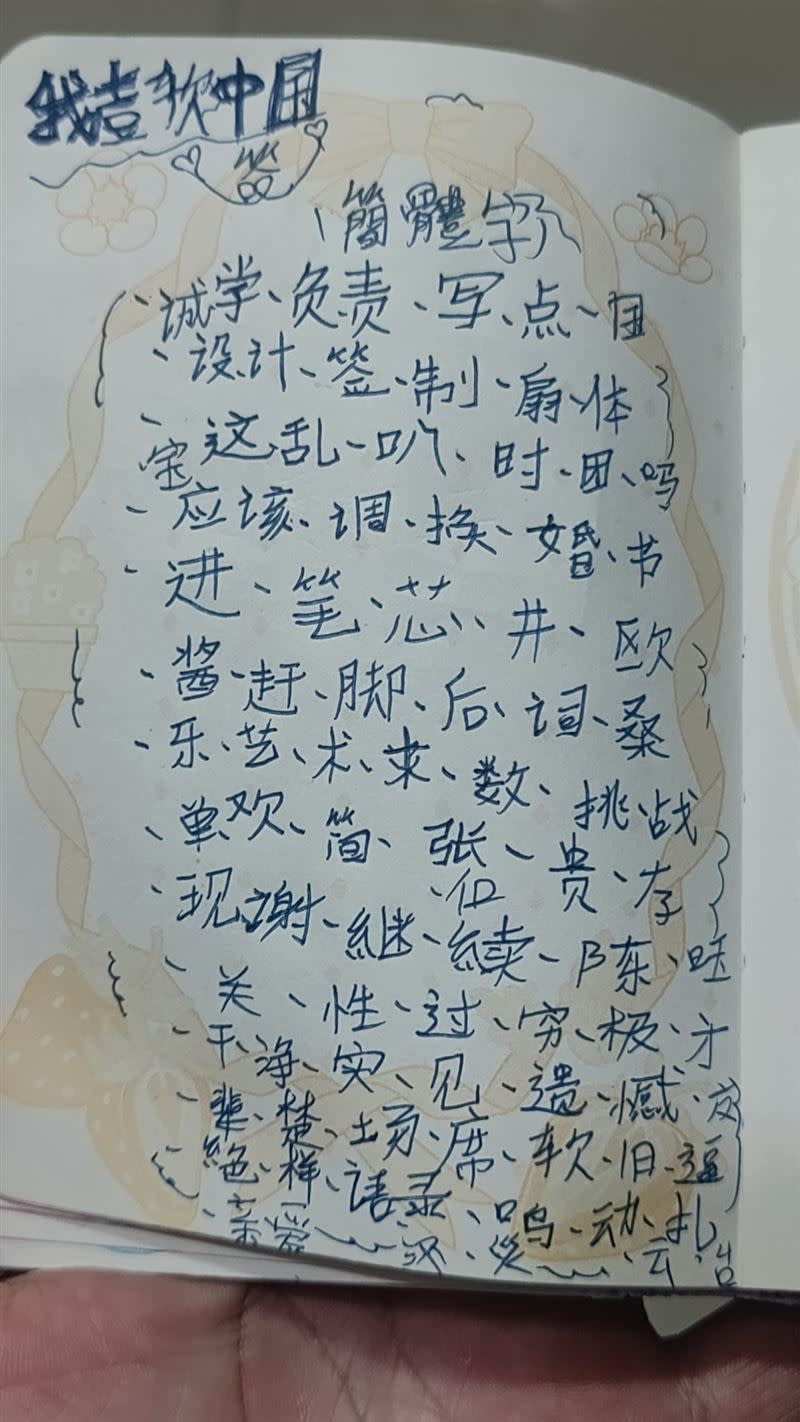 我喜欢中国
答
、簡體字
、诚学、负责、写、点、国
、设计、签、制、扇、体
、宝这乱、叭、时、团、吗
、应该、调、换、婚、书
、进、笔、芯、井、欧
、酱、赶、脚、后、词、桑
、乐、艺、术、来、数、挑战
、单欢、简、张、贵、存
、现谢、継、续、陈、旺
、关、性、过、穷、极、才
、干净、实、见、遗、憾
辈、楚、场、席、软、旧、逼
絶、样、语录、鸣、动、扎
亲爱、汉、云